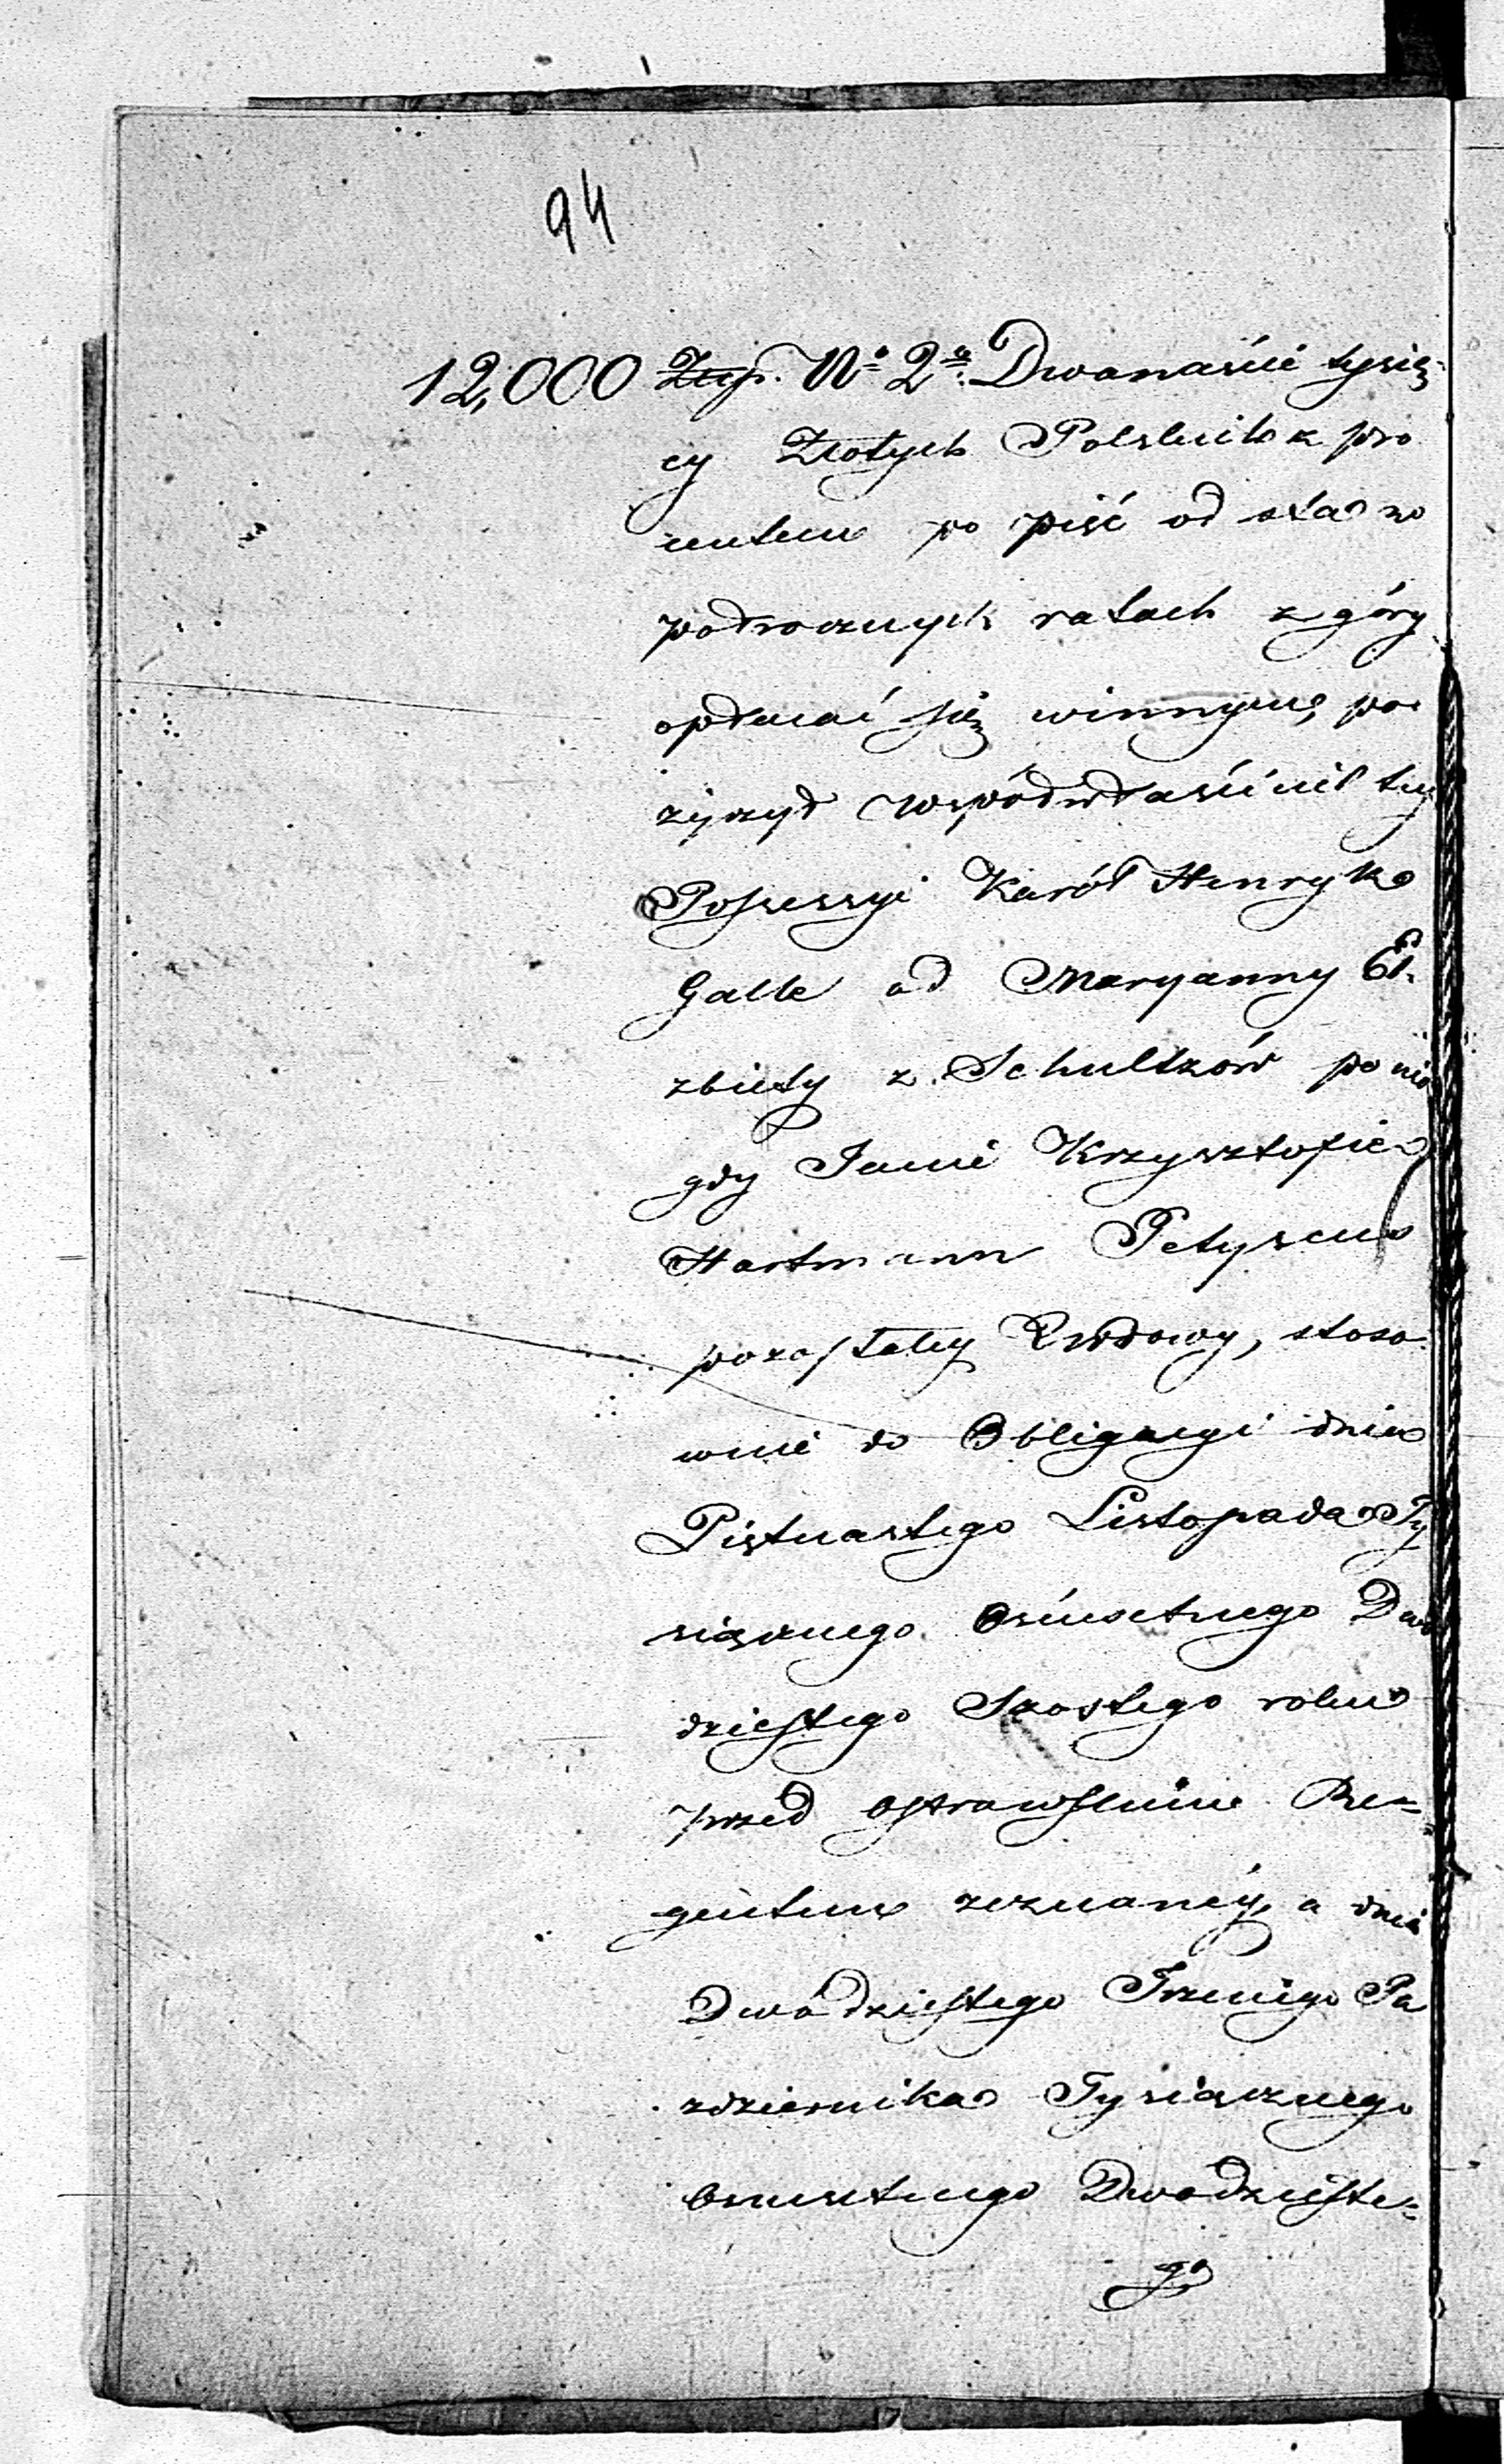 94
12,000 Złtp. No 2o. Dwanaście tysię-
cy Złotych Polskich z pro
centem po pięć od sta w
podrocznych ratach z góry
opłacać się winnym, po
życzył współwłaściciel tey
Possessyi Karól Henryk
Galle od Maryanny El-
zbiety z Schultzów po nie
gdy Janie Krzysztofie
Hartmann Petysem
pozostałey Wdowy, stoso
wnie do Obligacyi dnia
Piętnastego Listopada Ty
siącznego Osiemsetnego Dwó
dziestego Szostego roku
przed Ostrawskim Re-
gentem zeznanéy, a dnia
Dwódziestego Trzeciego Pa
zdziernika Tysiącznego
Osmsetnego Dwódzieste-
go